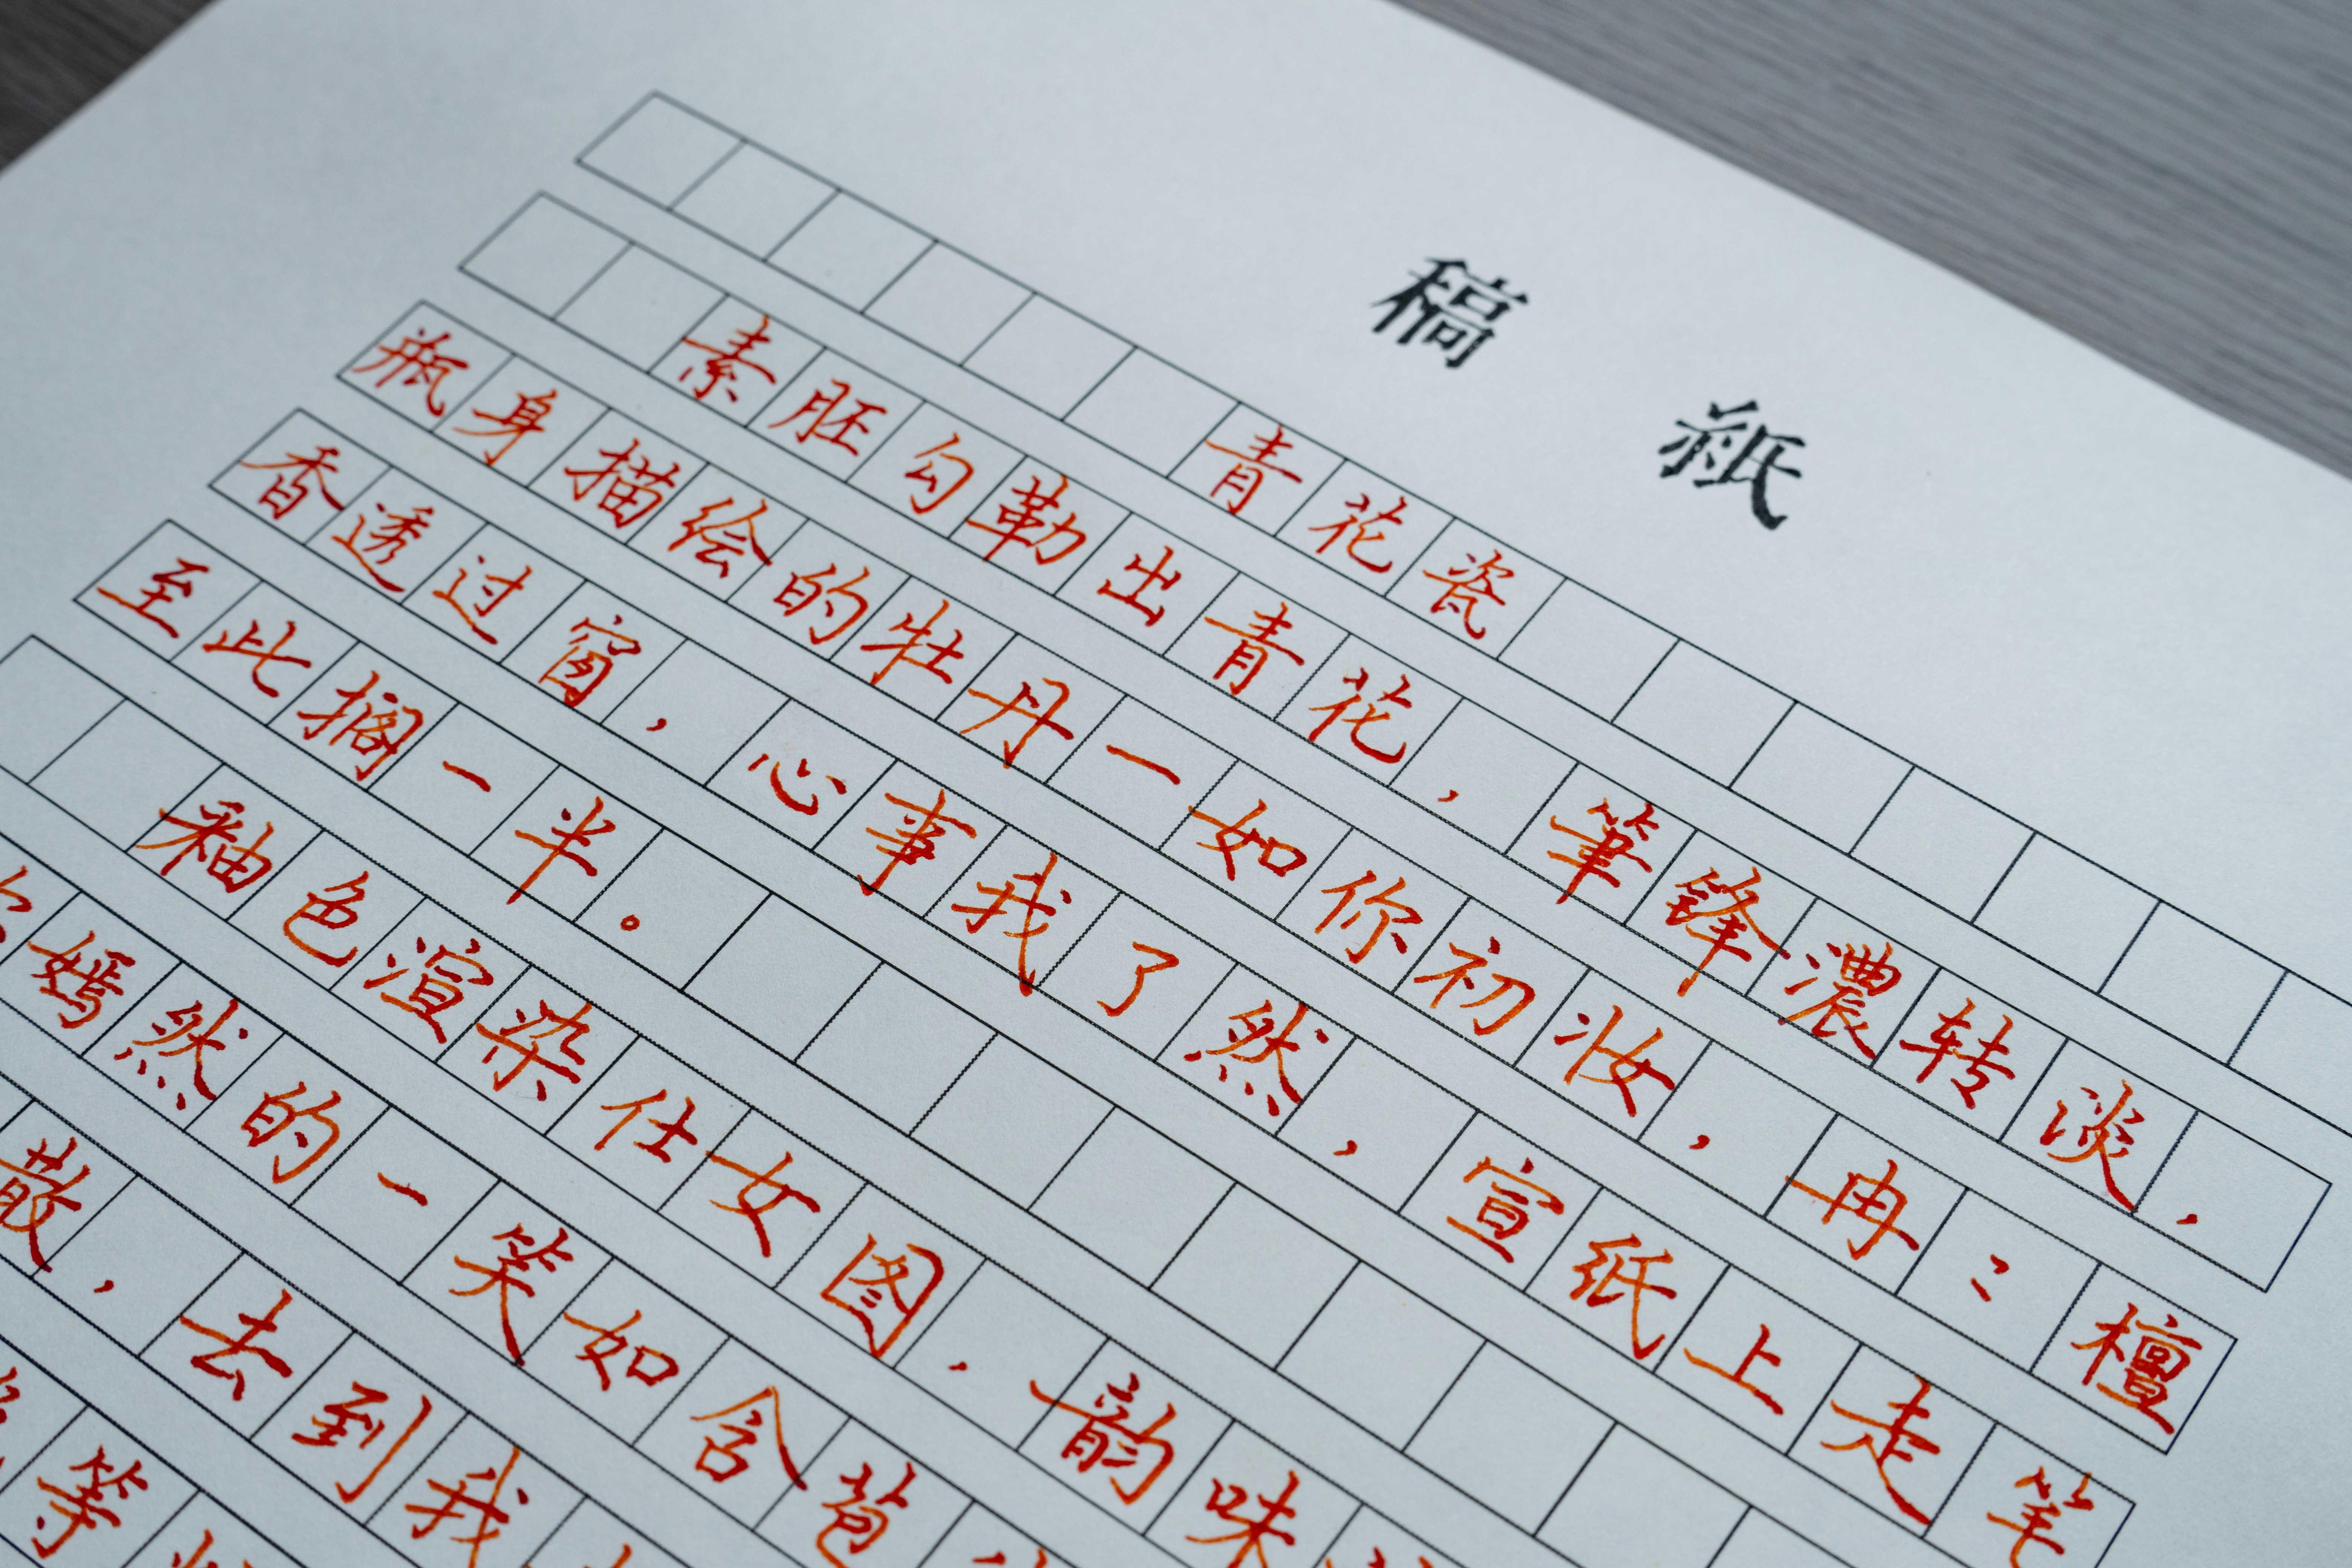 稿紙
青花瓷
素胚勾勒出青花，筆锋濃转淡，
瓶身描绘的牡丹一如你初妆，冉〻檀
香透过窗，心事我了然，宣纸上走笔
至此搁一半。
釉色渲染仕女图，韵味
嫣然的一笑如含苞
散，去到我
等